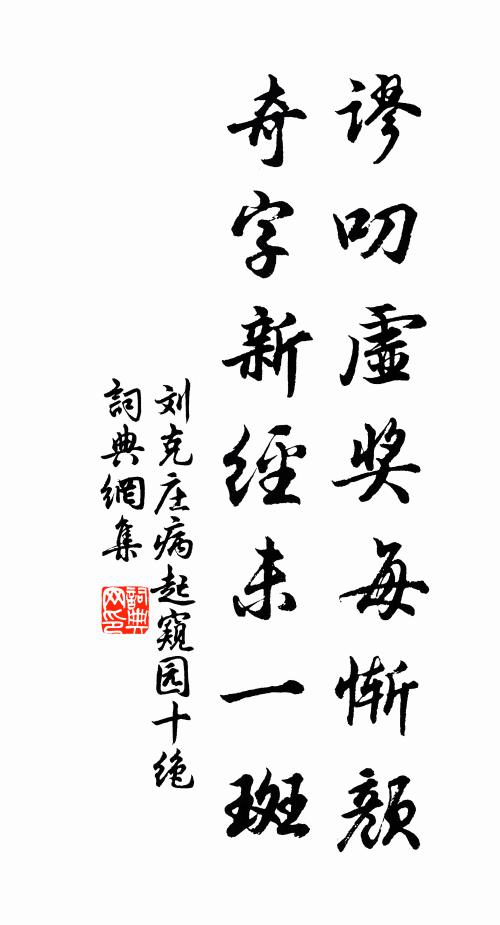 谬叨虚奖每惭颜
奇字新經未一斑
刘克庄病起窥园十绝
詞典網集
詞典网印